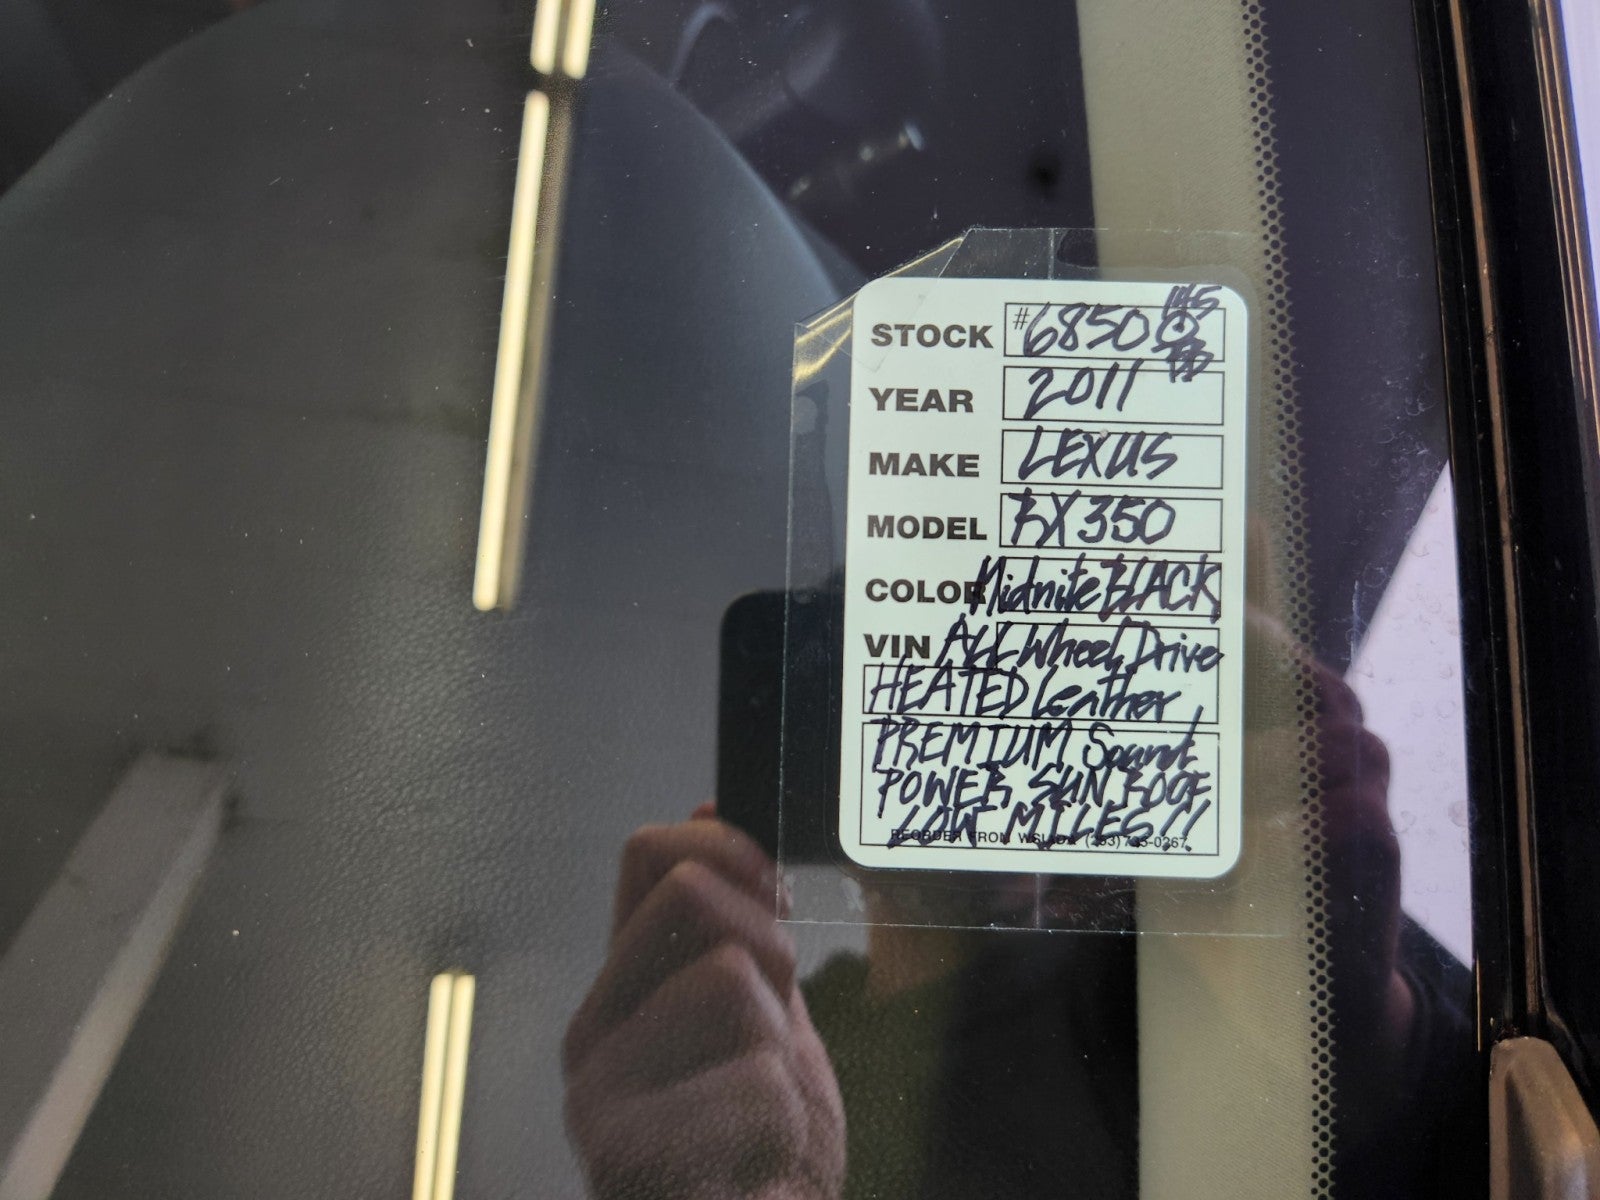 STOCK #6850
YEAR 2011
MAKE LEXUS
MODEL RX350
COLOR Midnite BLACK
VIN ALL Wheel Drive
HEATED Leather
PREMIUM Sound
POWER SUN ROOF
LOW MILES!!
REORDER FROM WSIADA (253) 735-0267